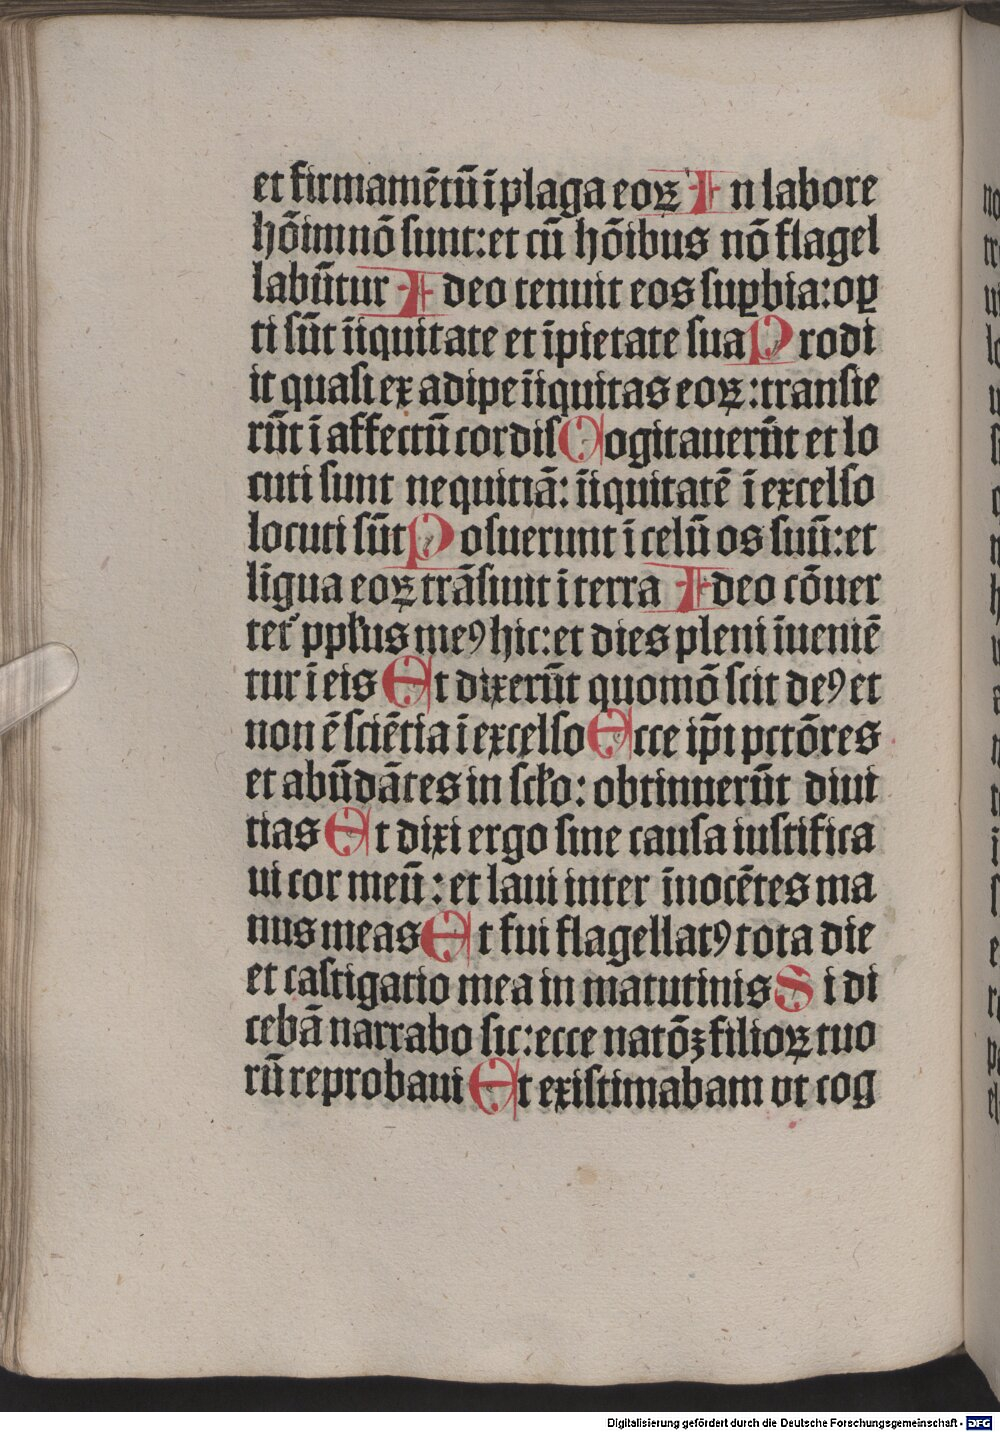 et firmamētū ī plaga eoꝝ In labore
hōim nō sunt: et cū hōibus nō flagel
labūtur Ideo tenuit eos suꝑbia: oꝑ
ti sūt īiquitate et īpietate sua Prodi
it quasi ex adipe īiquitas eoꝝ: transie
rūt ī affectū cordis Cogitauerūt et lo
cuti sunt nequitiā: īiquitatē ī excelso
locuti sūt Posuerunt ī celū os suū: et
līgua eoꝝ trāsiuit ī terra Ideo cōuer
tet᷑ ppl̓us meꝰ hic: et dies pleni īueniē
tur ī eis Et dixerūt quomō scit deꝰ et
non ē sciētia ī excelso Ecce ip̄i pctōres
et abūdātes in scl̓o: obtinuerūt diui
tias Et dixi ergo sine causa iustifica
ui cor meū: et laui inter īnocētes ma
nus meas Et fui flagellatꝰ tota die
et castigatio mea in matutinis Si di
cebā narrabo sic: ecce natōꝫ filioꝝ tuo
rū reprobaui Et existimabam vt cog
Digitalisierung gefördert durch die Deutsche Forschungsgemeinschaft - DFG